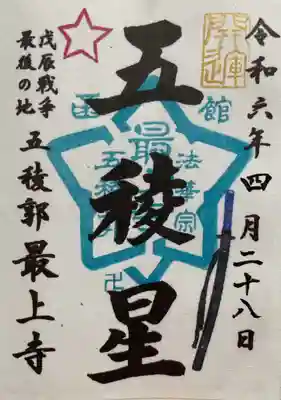 開運
令和六年四月二十八日
函館
法華宗
最
五稜
卍
五稜星
戊辰戦争
最後の地
五稜郭 最上寺